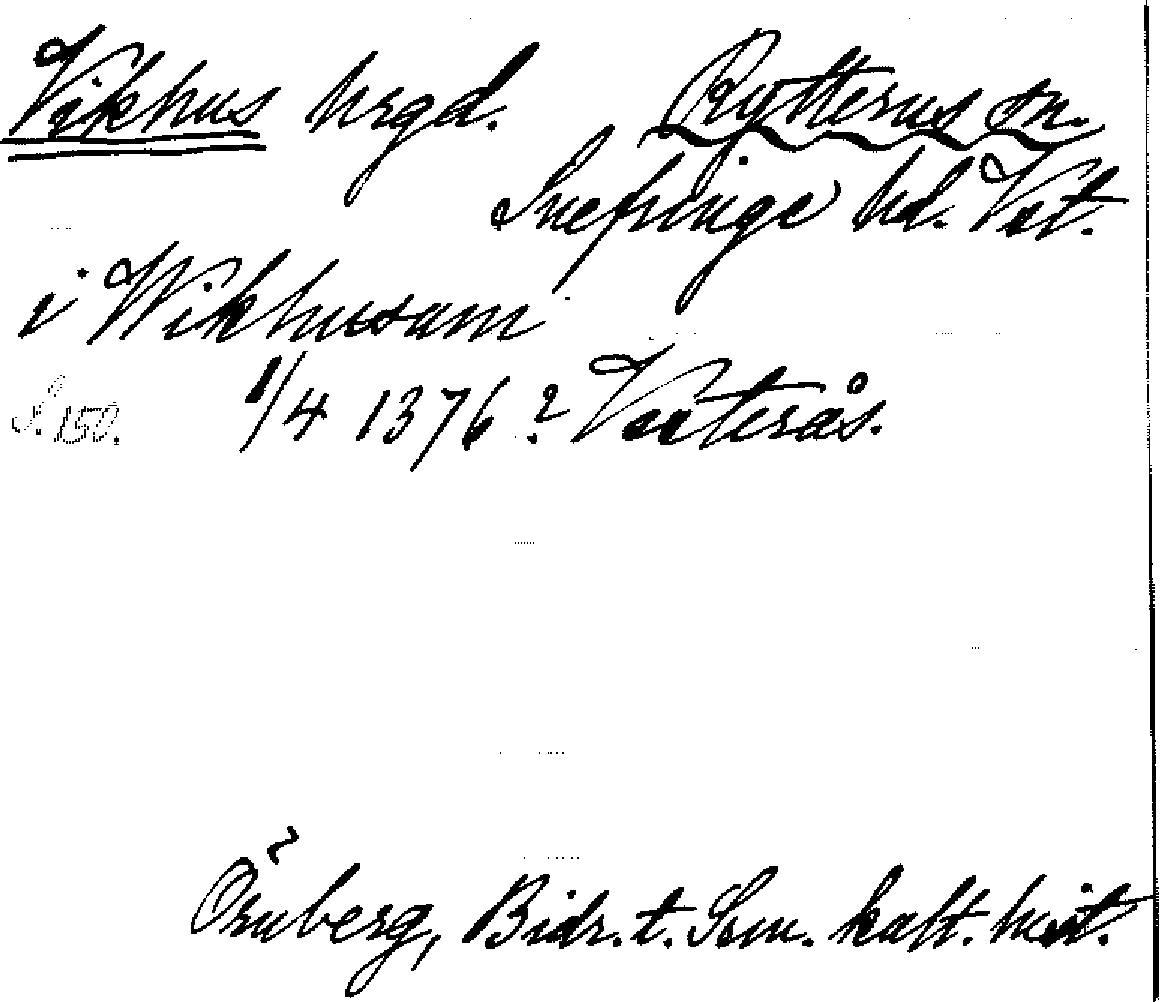 Vikhus hrgd. Rytterns sn.
Snefringe hd. Vstm.
i Wikhusum
S. 150. 1/4 1376 ? Vesterås.
Örnberg, Bidr. t. Svn. kaft. hist.